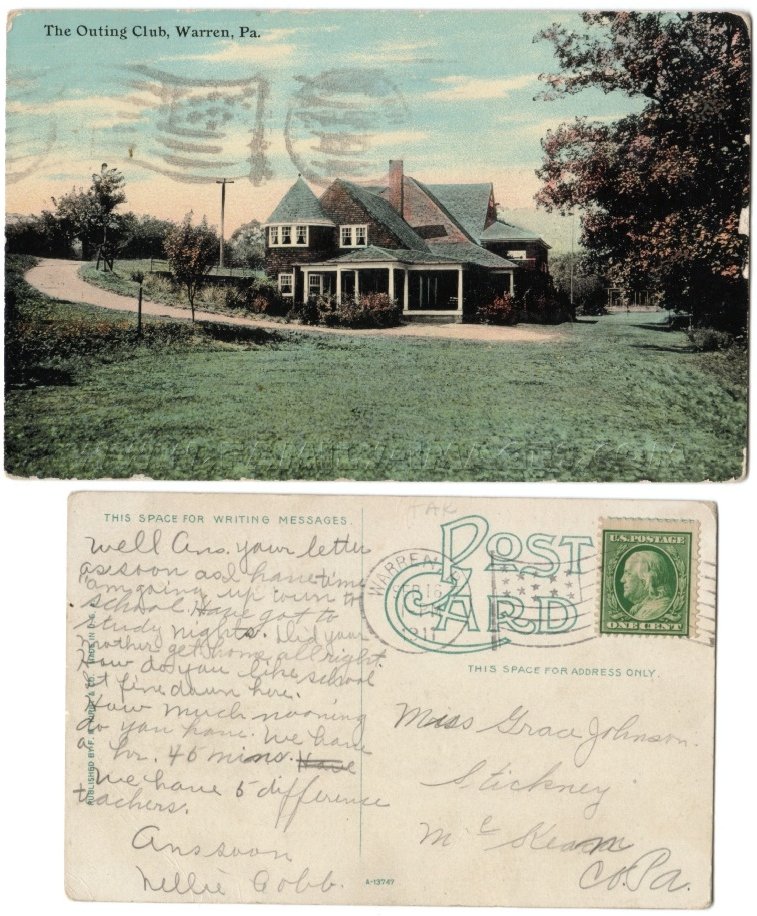 The Outing Club, Warren, Pa.
THIS SPACE FOR WRITING MESSAGES
Well Ans. your letter
as soon as I have time
am going up town to
school. Have got to
study nights. Did your
mother get home all right.
How do you like school
at fine down here.
How much nooning
do you have. We have
a hr. 45 mins. Have
We have 5 difference
teachers.
Ans soon
Nellie Cobb.
MADE IN U.S.A.
PUBLISHED BY F. & CO.
A-13747
POST
CARD
WARREN
SEP 16
1911
U.S. POSTAGE
ONE CENT
THIS SPACE FOR ADDRESS ONLY.
Miss Grace Johnson.
Stickney
Mc Kean
Co. Pa.